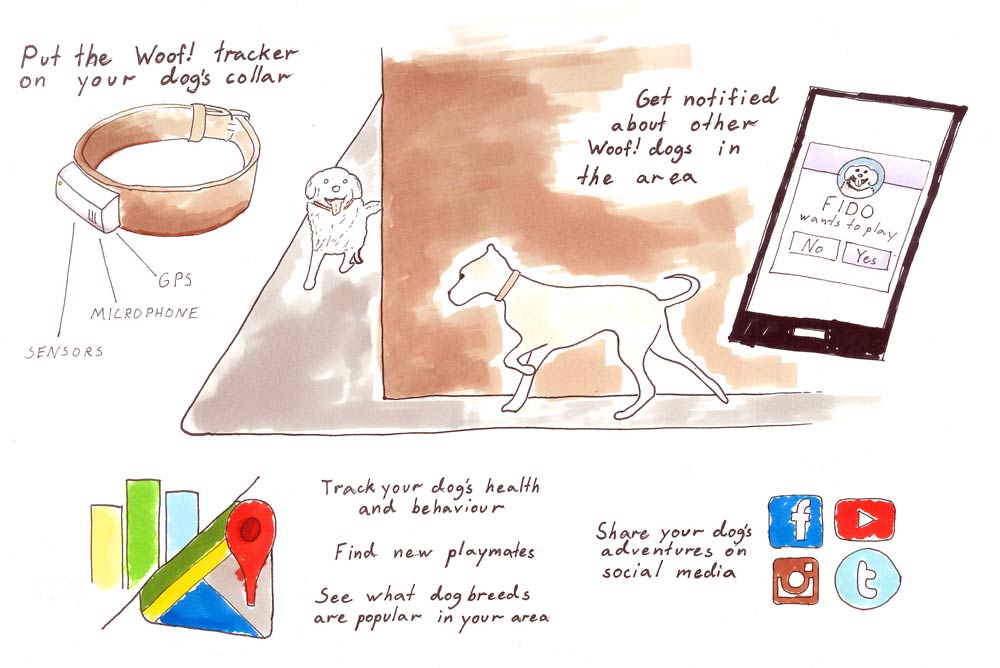 Put the Woof! tracker
on your dog's collar
GPS
MICROPHONE
SENSORS
Get notified
about other
Woof! dogs in
the area
FIDO
wants to play
No
Yes
Track your dog's health
and behaviour
Find new playmates
See what dog breeds
are popular in your area
Share your dog's
adventures on
social media
f
t